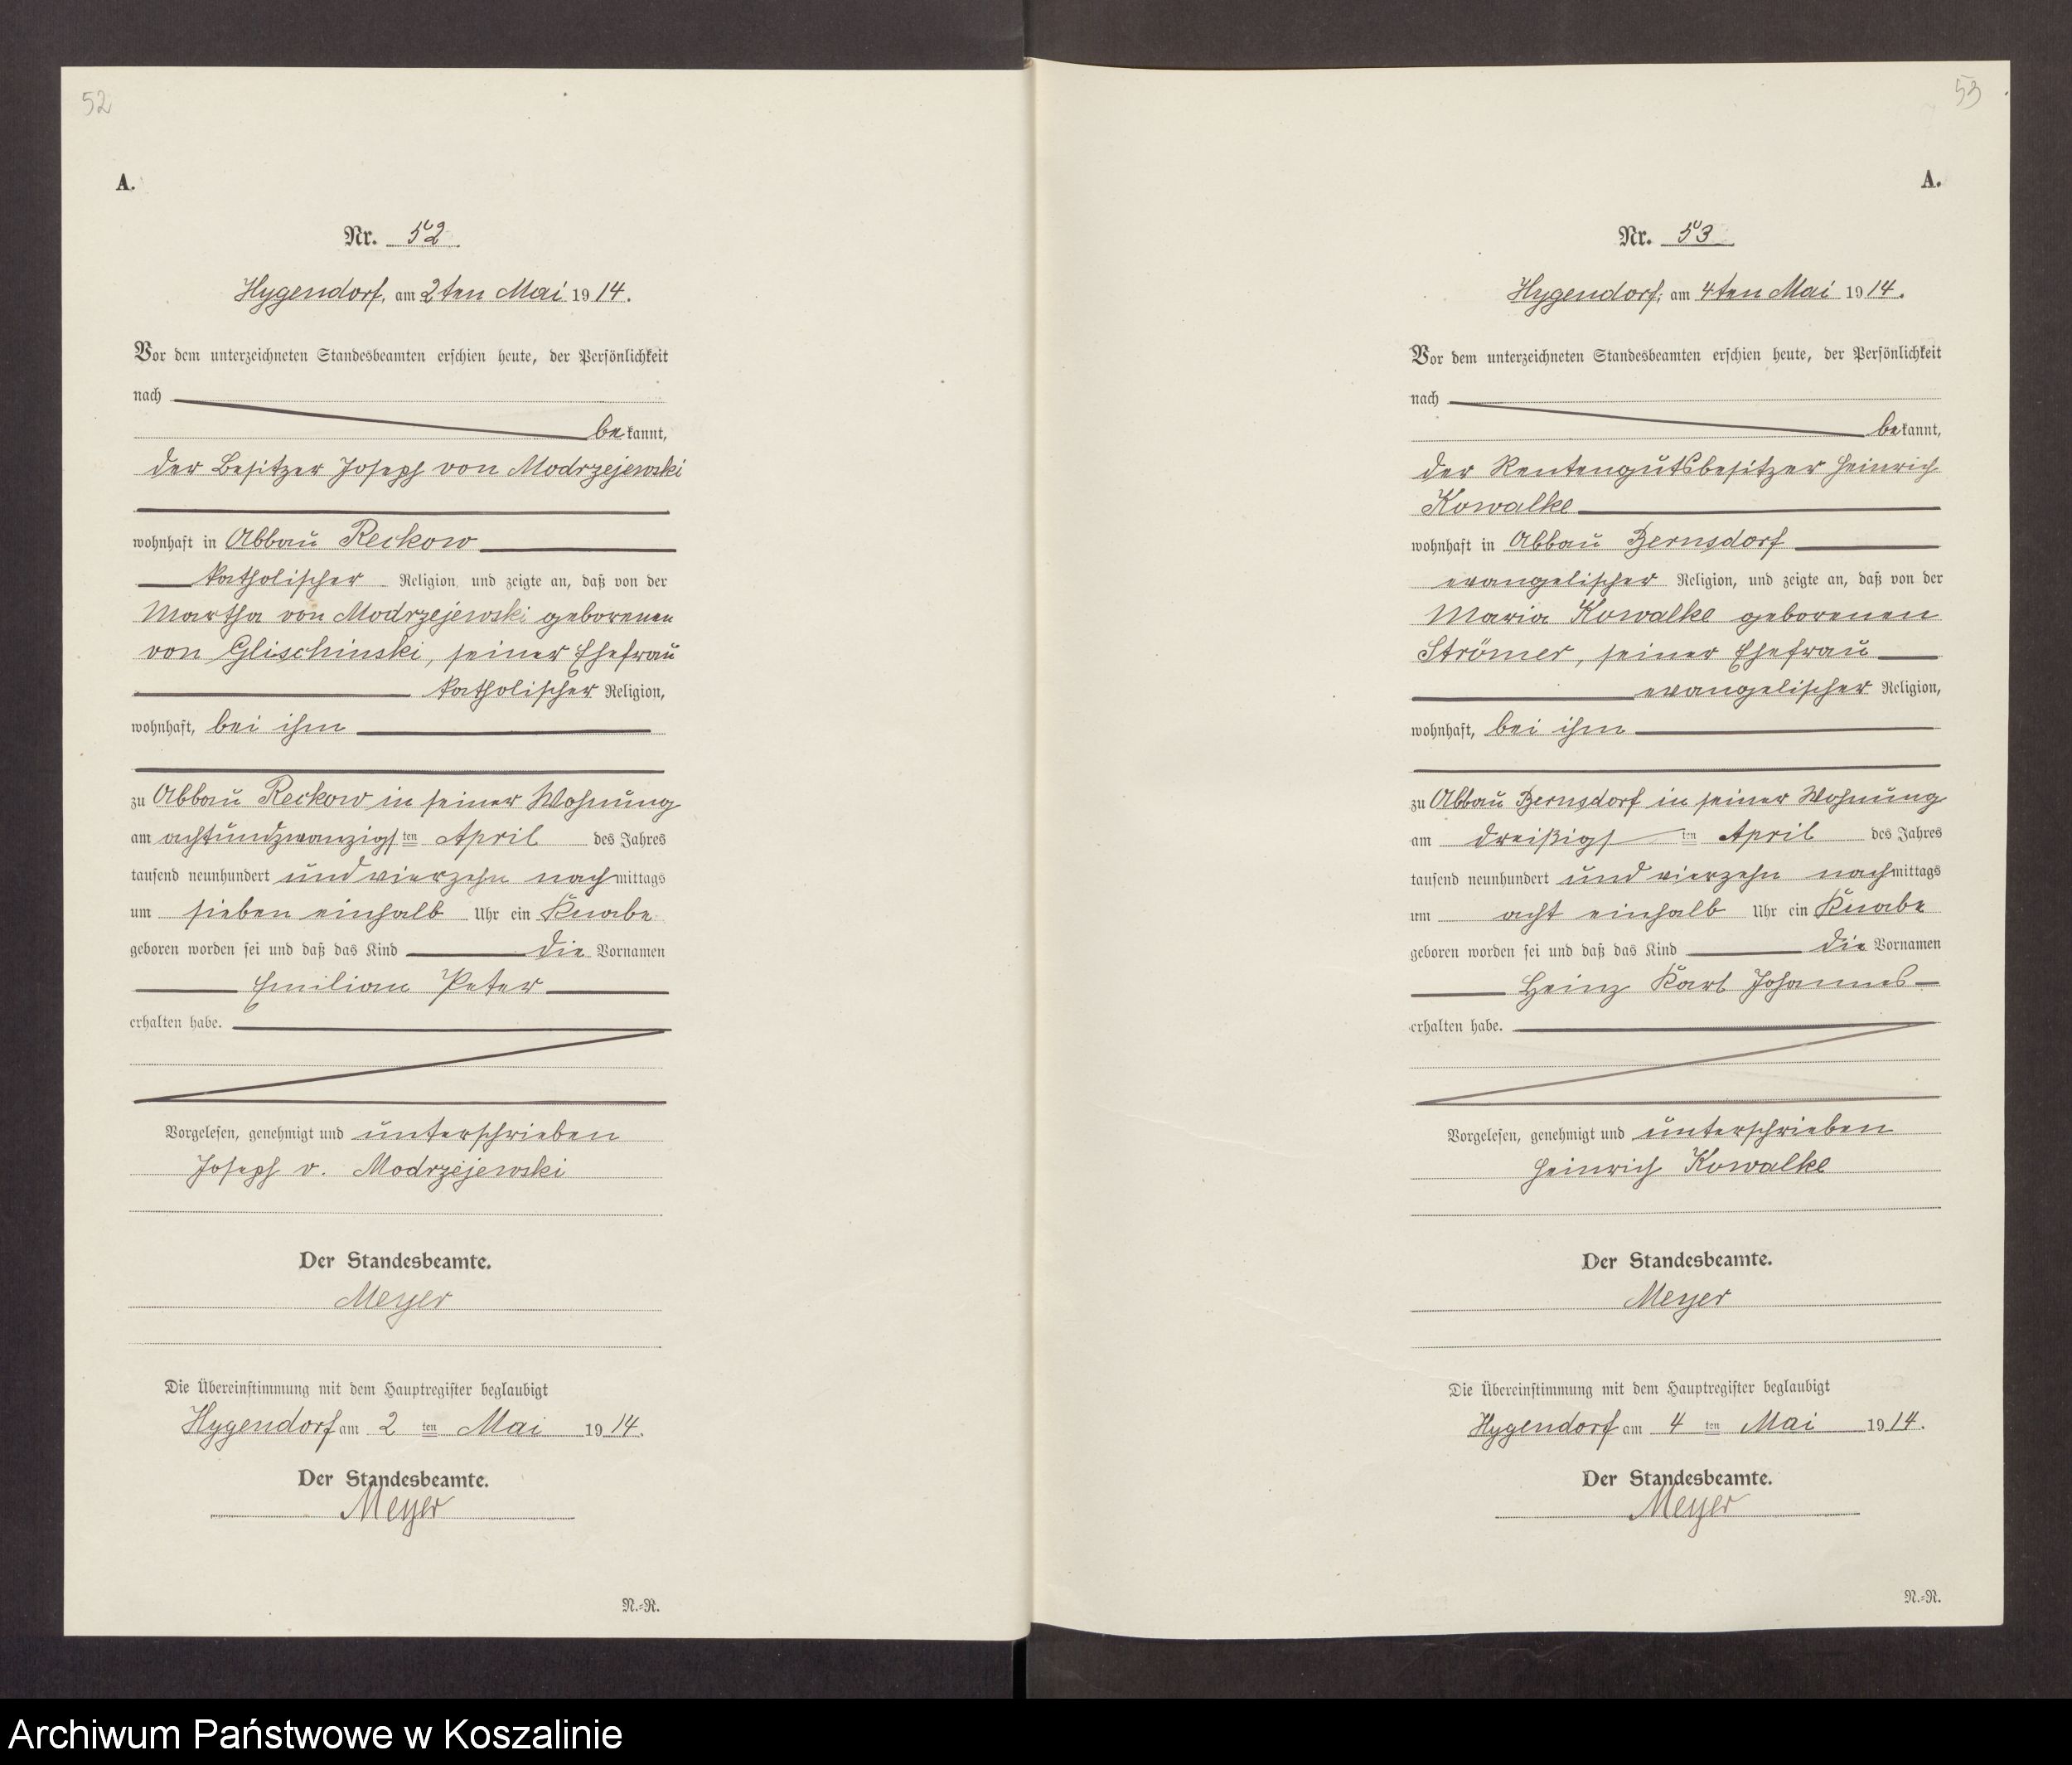 52
A.
Nr. 52
Hygendorf, am 2ten Mai 1914.
Vor dem unterzeichneten Standesbeamten erschien heute, der Persönlichkeit
nach
bekannt,
der Besitzer Joseph von Modrzejewski
wohnhaft in Abbau Reckow
katholischer Religion, und zeigte an, daß von der
Martha von Modrzejewski geborenen
von Glischinski, seiner Ehefrau
katholischer Religion,
wohnhaft, bei ihm
zu Abbau Reckow in seiner Wohnung
am achtundzwanzigsten April des Jahres
tausend neunhundert und vierzehn nachmittags
um sieben einhalb Uhr ein Knabe
geboren worden sei und daß das Kind die Vornamen
Emilian Peter
erhalten habe.
Vorgelesen, genehmigt und unterschrieben
Joseph v. Modrzejewski
Der Standesbeamte.
Meyer
Die Übereinstimmung mit dem Hauptregister beglaubigt
Hygendorf am 2ten Mai 1914.
Der Standesbeamte.
Meyer
N.-R.
53
A.
Nr. 53
Hygendorf, am 4ten Mai 1914.
Vor dem unterzeichneten Standesbeamten erschien heute, der Persönlichkeit
nach
bekannt,
der Rentengutsbesitzer Heinrich
Kowalke
wohnhaft in Abbau Bernsdorf
evangelischer Religion, und zeigte an, daß von der
Maria Kowalke geborenen
Strömer, seiner Ehefrau
evangelischer Religion,
wohnhaft, bei ihm
zu Abbau Bernsdorf in seiner Wohnung
am dreißigsten April des Jahres
tausend neunhundert und vierzehn nachmittags
um acht einhalb Uhr ein Knabe
geboren worden sei und daß das Kind die Vornamen
Heinz Karl Johannes
erhalten habe.
Vorgelesen, genehmigt und unterschrieben
Heinrich Kowalke
Der Standesbeamte.
Meyer
Die Übereinstimmung mit dem Hauptregister beglaubigt
Hygendorf am 4ten Mai 1914.
Der Standesbeamte.
Meyer
N.-R.
Archiwum Państwowe w Koszalinie